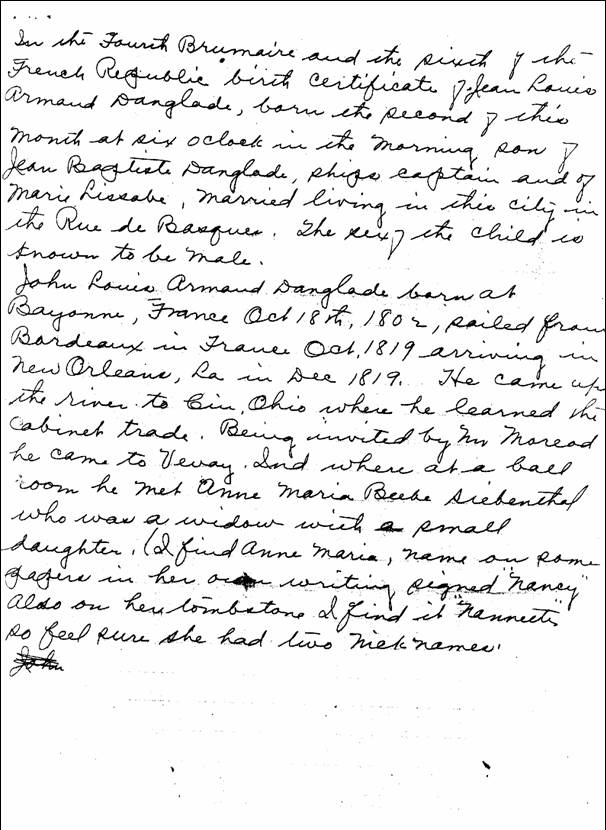 In the Fourth Brumaire and the sixth of the
French Republic birth certificate of Jean Louis
Armand Danglade, born the second of this
month at six oclock in the morning son of
Jean Baptiste Danglade, ships captain and of
Marie Lissabe, married living in this city in
the Rue de Basques. The sex of the child is
known to be male.
John Louis Armand Danglade born at
Bayonne, France Oct 18th, 1802, sailed from
Bordeaux in France Oct, 1819 arriving in
New Orleans, La in Dec 1819. He came up
the river to Cin, Ohio where he learned the
cabinet trade. Being invited by Mr Moreod
he came to Vevay, Ind where at a ball
room he met Anne Maria Beebe Siebenthal
who was a widow with a small
daughter. (I find Anne Maria, name on some
papers in her own writing signed "Nancy"
also on her tombstone I find it "Nannette"
so feel sure she had two nicknames.
John